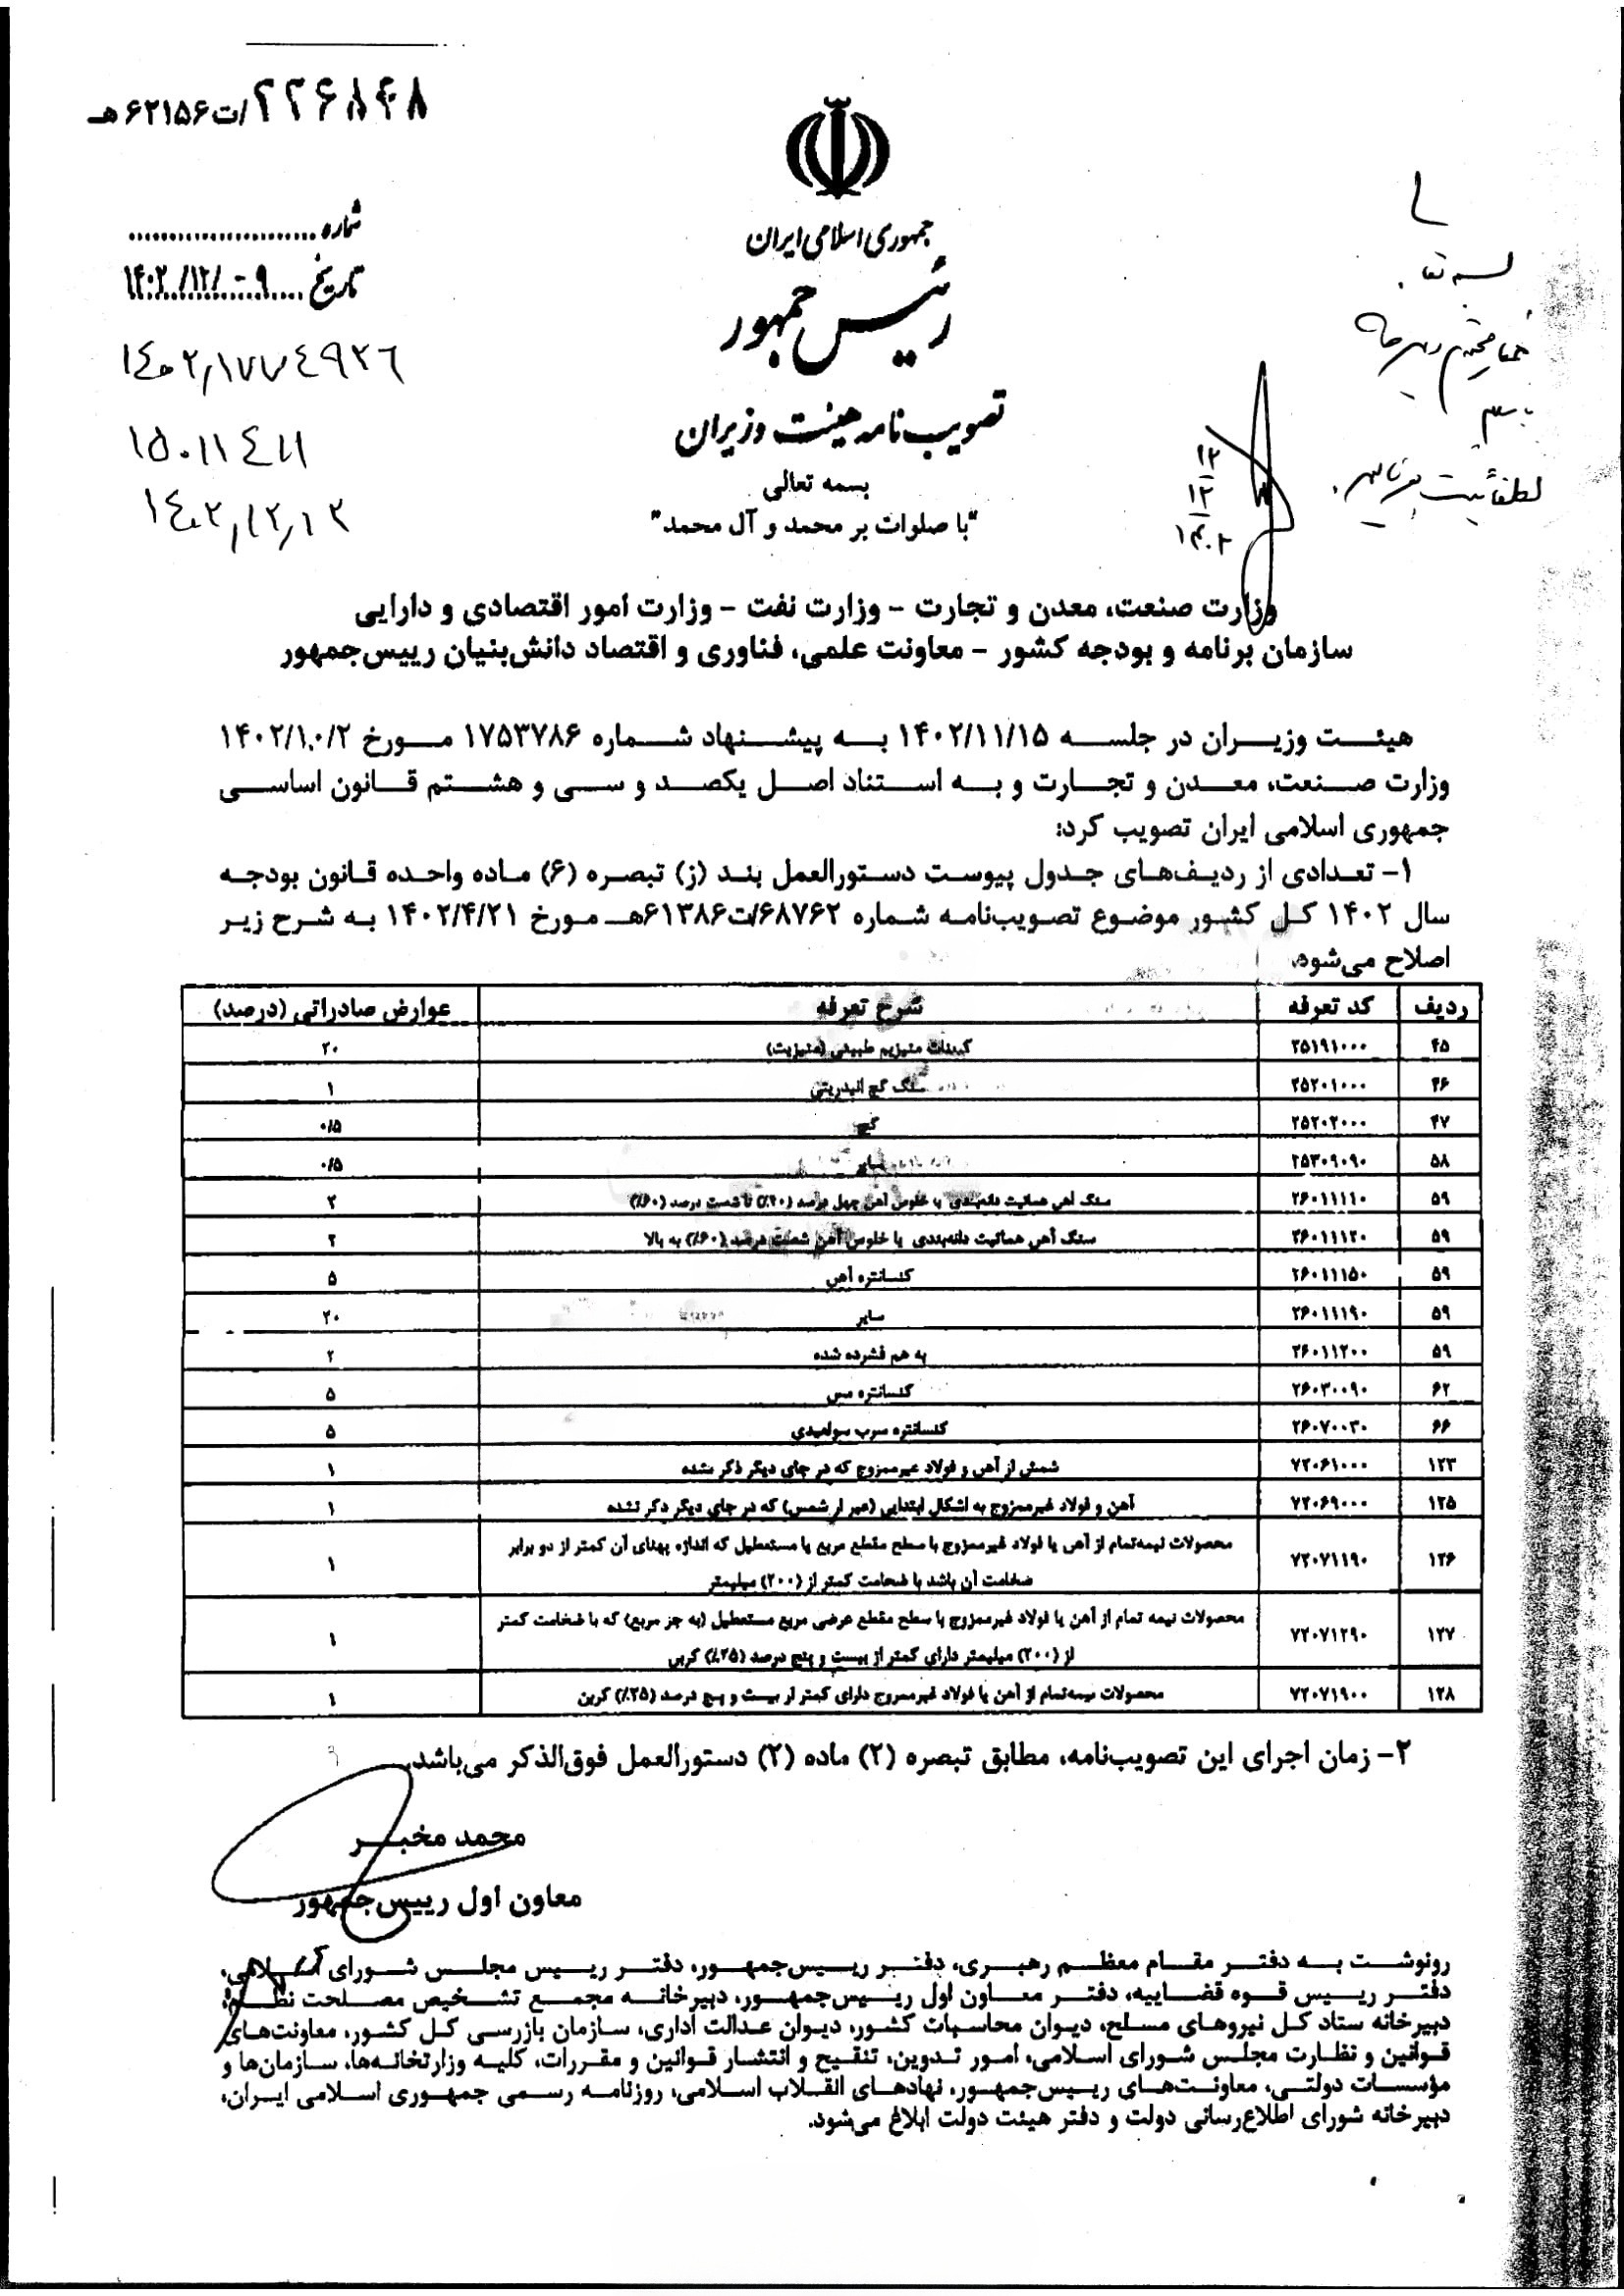 ۲۲۶۸۴۸/ت۶۲۱۵۶هـ
شماره
تاریخ ۱۴۰۲/۱۲/۰۹
۱۴۰۲,۱۷۷۴۹۲۶
۱۴۰۲,۱۲,۱۲
جمهوری اسلامی ایران
رئیس جمهور
تصویب‌نامه هیئت وزیران
بسمه تعالی
"با صلوات بر محمد و آل محمد"
۱۲
۱۲
۱۴۰۲
وزارت صنعت، معدن و تجارت – وزارت نفت – وزارت امور اقتصادی و دارایی
سازمان برنامه و بودجه کشور – معاونت علمی، فناوری و اقتصاد دانش‌بنیان رییس‌جمهور
هیئت وزیران در جلسه ۱۴۰۲/۱۱/۱۵ به پیشنهاد شماره ۱۷۵۳۷۸۶ مورخ ۱۴۰۲/۱۰/۲
وزارت صنعت، معدن و تجارت و به استناد اصل یکصد و سی و هشتم قانون اساسی
جمهوری اسلامی ایران تصویب کرد:
۱– تعدادی از ردیف‌های جدول پیوست دستورالعمل بند (ز) تبصره (۶) ماده واحده قانون بودجه
سال ۱۴۰۲ کل کشور موضوع تصویب‌نامه شماره ۶۸۷۶۲/ت۶۱۳۸۶هـ مورخ ۱۴۰۲/۴/۲۱ به شرح زیر
اصلاح می‌شود:
ردیف کد تعرفه شرح تعرفه عوارض صادراتی (درصد)
۴۵ ۲۵۱۹۱۰۰۰ کربنات منیزیم طبیعی (منیزیت) ۲۰
۴۶ ۲۵۲۰۱۰۰۰ سنگ گچ انیدریتی ۱
۴۷ ۲۵۲۰۲۰۰۰ گچ ۰/۵
۵۸ ۲۵۳۰۹۰۹۰ سایر ۰/۵
۵۹ ۲۶۰۱۱۱۱۰ سنگ آهن هماتیت دانه‌بندی با خلوص آهن چهل درصد (۴۰٪) تا شصت درصد (۶۰٪) ۲
۵۹ ۲۶۰۱۱۱۲۰ سنگ آهن هماتیت دانه‌بندی با خلوص آهن شصت درصد (۶۰٪) به بالا ۲
۵۹ ۲۶۰۱۱۱۵۰ کنسانتره آهن ۵
۵۹ ۲۶۰۱۱۱۹۰ سایر ۲۰
۵۹ ۲۶۰۱۱۲۰۰ به هم فشرده شده ۲
۶۲ ۲۶۰۳۰۰۹۰ کنسانتره مس ۵
۶۶ ۲۶۰۷۰۰۳۰ کنسانتره سرب سولفیدی ۵
۱۲۳ ۷۲۰۶۱۰۰۰ شمش از آهن و فولاد غیرممزوج که در جای دیگر ذکر نشده ۱
۱۲۵ ۷۲۰۶۹۰۰۰ آهن و فولاد غیرممزوج به اشکال ابتدایی (غیر از شمش) که در جای دیگر ذکر نشده ۱
۱۲۶ ۷۲۰۷۱۱۹۰ محصولات نیمه‌تمام از آهن یا فولاد غیرممزوج با سطح مقطع مربع یا مستطیل که اندازه پهنای آن کمتر از دو برابر ۱
ضخامت آن باشد با ضخامت کمتر از (۲۰۰) میلیمتر
۱۲۷ ۷۲۰۷۱۲۹۰ محصولات نیمه تمام از آهن یا فولاد غیرممزوج با سطح مقطع عرضی مربع مستطیل (به جز مربع) که با ضخامت کمتر ۱
از (۲۰۰) میلیمتر دارای کمتر از بیست و پنج درصد (۲۵٪) کربن
۱۲۸ ۷۲۰۷۱۹۰۰ محصولات نیمه‌تمام از آهن یا فولاد غیرممزوج دارای کمتر از بیست و پنج درصد (۲۵٪) کربن ۱
۲– زمان اجرای این تصویب‌نامه، مطابق تبصره (۲) ماده (۲) دستورالعمل فوق‌الذکر می‌باشد.
محمد مخبر
معاون اول رییس‌جمهور
رونوشت به دفتر مقام معظم رهبری، دفتر رییس‌جمهور، دفتر رییس مجلس شورای اسلامی،
دفتر رییس قوه قضاییه، دفتر معاون اول رییس‌جمهور، دبیرخانه مجمع تشخیص مصلحت نظام،
دبیرخانه ستاد کل نیروهای مسلح، دیوان محاسبات کشور، دیوان عدالت اداری، سازمان بازرسی کل کشور، معاونت‌های
قوانین و نظارت مجلس شورای اسلامی، امور تدوین، تنقیح و انتشار قوانین و مقررات، کلیه وزارتخانه‌ها، سازمان‌ها و
مؤسسات دولتی، معاونت‌های رییس‌جمهور، نهادهای انقلاب اسلامی، روزنامه رسمی جمهوری اسلامی ایران،
دبیرخانه شورای اطلاع‌رسانی دولت و دفتر هیئت دولت ابلاغ می‌شود.